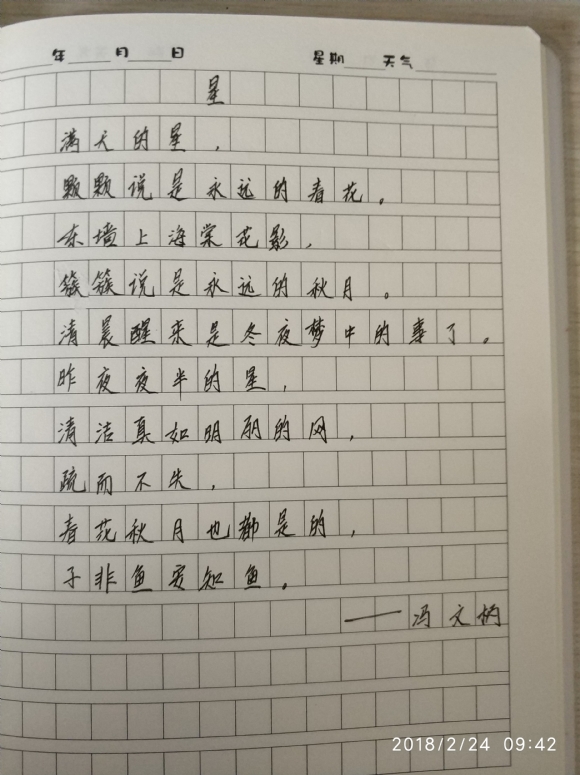 年 月 日 星期 天气
星
满天的星，
颗颗说是永远的春花。
东墙上海棠花影，
簇簇说是永远的秋月。
清晨醒来是冬夜梦中的事了。
昨夜夜半的星，
清洁真如明丽的网，
疏而不失，
春花秋月也都是的，
子非鱼安知鱼。
——冯文炳
2018/2/24 09:42